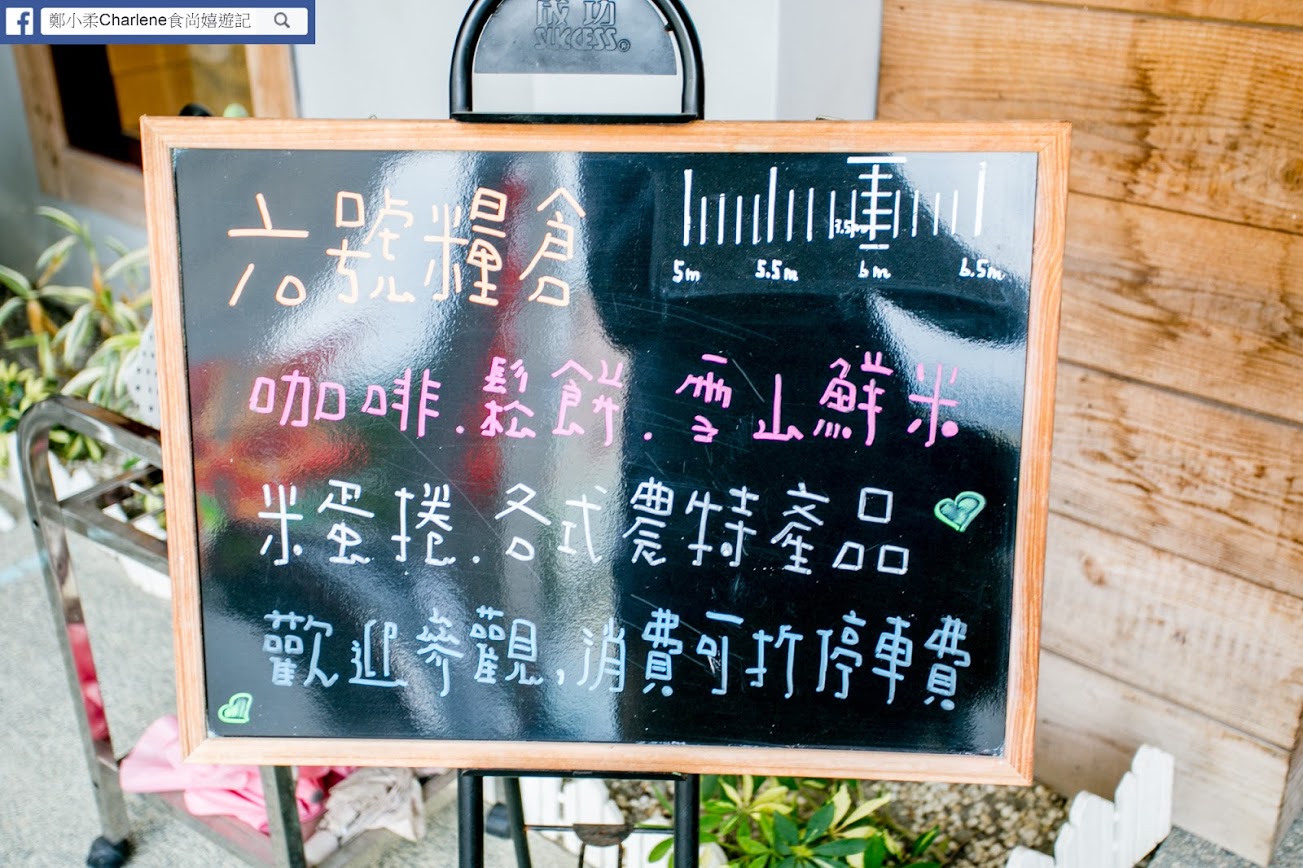 鄭小柔Charlene食尚嬉遊記
成功
SUCCESS
六號糧倉
5m 5.5m 6m 6.5m
咖啡.鬆餅.雪山鮮米
米蛋捲.各式農特產品
歡迎參觀,消費可折停車費